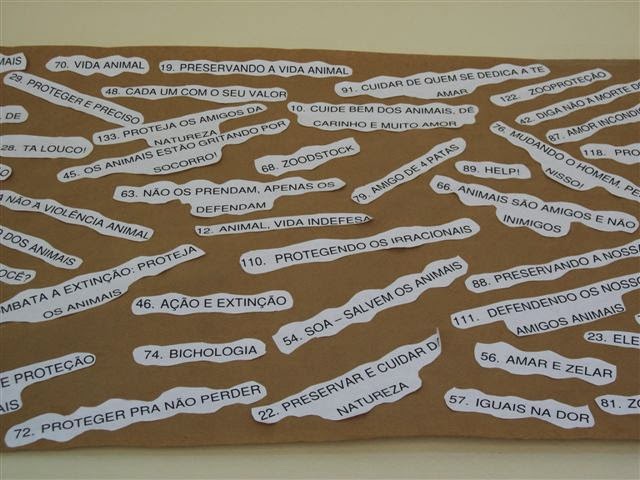 MAIS
70. VIDA ANIMAL
19. PRESERVANDO A VIDA ANIMAL
29. PROTEGER E PRECISO
48. CADA UM COM O SEU VALOR
91. CUIDAR DE QUEM SE DEDICA A TE
AMAR
122. ZOOPROTEÇÃO
42. DIGA NÃO A MORTE
DE
133. PROTEJA OS AMIGOS DA
NATUREZA
10. CUIDE BEM DOS ANIMAIS, DÊ
CARINHO E MUITO AMOR
87. AMOR
28. TA LOUCO!
45. OS ANIMAIS ESTÃO GRITANDO POR
SOCORRO!
68. ZOODSTOCK
79. AMIGO DE 4 PATAS
76. MUDANDO O HOMEM,
NISSO!
118.
89. HELP!
63. NÃO OS PRENDAM, APENAS OS
DEFENDAM
66. ANIMAIS SÃO AMIGOS E NÃO
INIMIGOS
NÃO A VIOLÊNCIA ANIMAL
12. ANIMAL, VIDA INDEFESA
DOS ANIMAIS
110. PROTEGENDO OS IRRACIONAIS
VOCÊ?
OMBATA A EXTINÇÃO: PROTEJA
OS ANIMAIS
88. PRESERVANDO A NOSSA
46. AÇÃO E EXTINÇÃO
54. SOA – SALVEM OS ANIMAIS
111. DEFENDENDO OS NOSSO
AMIGOS ANIMAIS
23. ELE
74. BICHOLOGIA
56. AMAR E ZELAR
E PROTEÇÃO
MAIS
22. PRESERVAR E CUIDAR DA
NATUREZA
57. IGUAIS NA DOR
81. ZO
72. PROTEGER PRA NÃO PERDER